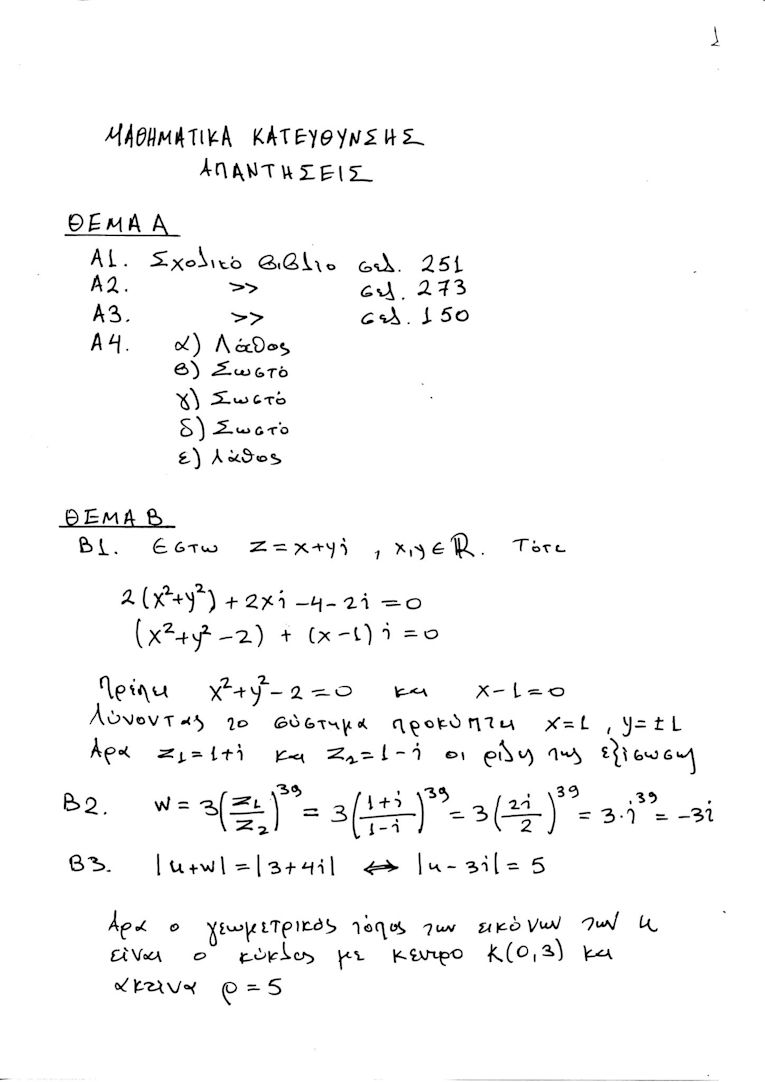 1
ΜΑΘΗΜΑΤΙΚΑ ΚΑΤΕΥΘΥΝΣΗΣ
ΑΠΑΝΤΗΣΕΙΣ
ΘΕΜΑ Α
Α1. Σχολικό βιβλίο σελ. 251
Α2. >> σελ. 273
Α3. >> σελ. 150
Α4. α) Λάθος
β) Σωστό
γ) Σωστό
δ) Σωστό
ε) Λάθος
ΘΕΜΑ Β
Β1. Εστω z=x+yi , x,y∈ℝ. Τότε
2(x²+y²)+2xi-4-2i=0
(x²+y²-2) + (x-1)i=0
Πρέπει x²+y²-2=0 και x-1=0
Λύνοντας το σύστημα προκύπτει x=1 , y=±1
Αρα z₁=1+i και z₂=1-i οι ρίζες της εξίσωσης
Β2. w = 3(z₁/z₂)³⁹ = 3((1+i)/(1-i))³⁹ = 3(2i/2)³⁹ = 3·i³⁹ = -3i
Β3. |u+w|=|3+4i| ⇔ |u-3i|= 5
Αρα ο γεωμετρικός τόπος των εικόνων των u
είναι ο κύκλος με κεντρο Κ(0,3) και
ακτινα ρ = 5